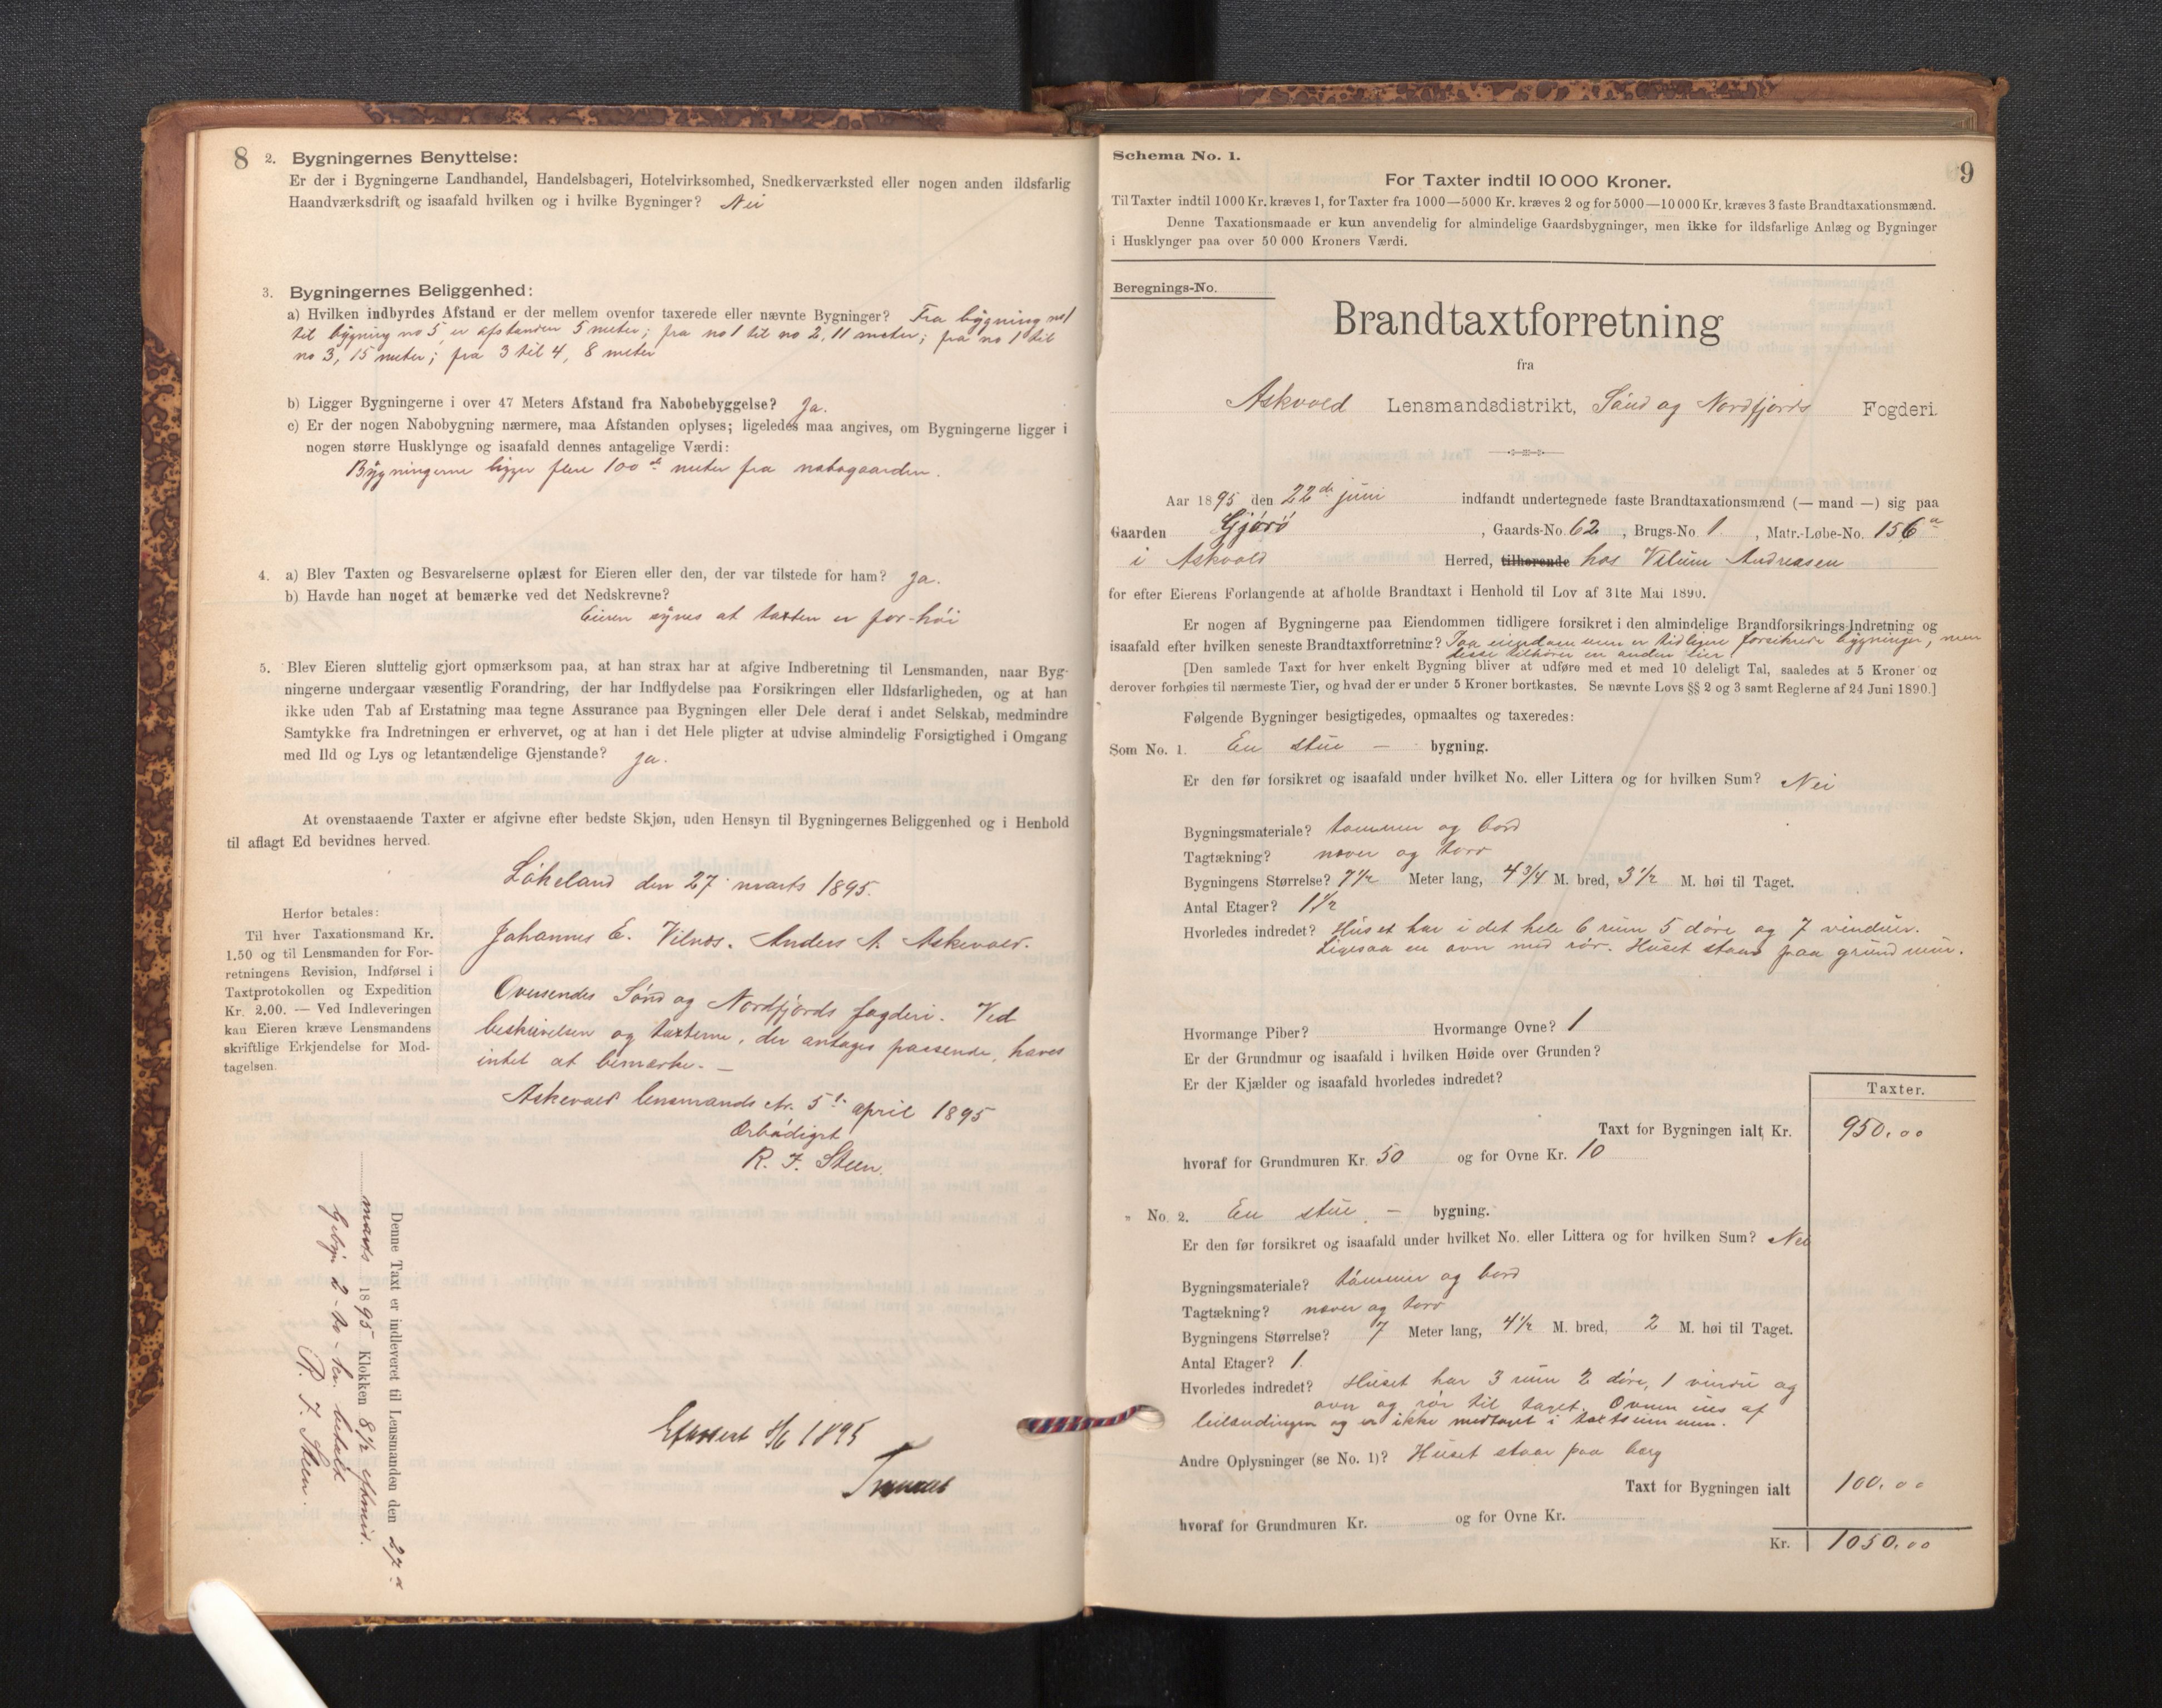 8
2. Bygningernes Benyttelse:
Er der i Bygningerne Landhandel, Handelsbageri, Hotelvirksomhed, Snedkerværksted eller nogen anden ildsfarlig
Haandværksdrift og isaafald hvilken og i hvilke Bygninger? Nei
3. Bygningernes Beliggenhed:
a) Hvilken indbyrdes Afstand er der mellem ovenfor taxerede eller nævnte Bygninger? Fra bygning no 1
til bygning no 5, er afstanden 5 meter; fra no 1 til no 2, 11 meter; fra no 1 til
no 3, 15 meter; fra 3 til 4, 8 meter
b) Ligger Bygningerne i over 47 Meters Afstand fra Nabobebyggelse? Ja.
c) Er der nogen Nabobygning nærmere, maa Afstanden oplyses; ligeledes maa angives, om Bygningerne ligger i
nogen større Husklynge og isaafald dennes antagelige Værdi:
Bygningerne ligger flere 100de meter fra nabogaarden.
4. a) Blev Taxten og Besvarelserne oplæst for Eieren eller den, der var tilstede for ham? Ja.
b) Havde han noget at bemærke ved det Nedskrevne?
Eieren synes at taxten er for høi
5. Blev Eieren sluttelig gjort opmærksom paa, at han strax har at afgive Indberetning til Lensmanden, naar Byg-
ningerne undergaar væsentlig Forandring, der har Indflydelse paa Forsikringen eller Ildsfarligheden, og at han
ikke uden Tab af Erstatning maa tegne Assurance paa Bygningen eller Dele deraf i andet Selskab, medmindre
Samtykke fra Indretningen er erhvervet, og at han i det Hele pligter at udvise almindelig Forsigtighed i Omgang
med Ild og Lys og letantændelige Gjenstande? Ja.
At ovenstaaende Taxter er afgivne efter bedste Skjøn, uden Hensyn til Bygningernes Beliggenhed og i Henhold
til aflagt Ed bevidnes herved.
Lökeland den 27 marts 1895.
Johannes E. Vilnes. Anders A. Askevold.
Herfor betales:
Til hver Taxationsmand Kr.
1.50 og til Lensmanden for For-
retningens Revision, Indførsel i
Taxtprotokollen og Expedition
Kr. 2.00. — Ved Indleveringen
kan Eieren kræve Lensmandens
skriftlige Erkjendelse for Mod-
tagelsen.
Oversendes Sönd og Nordfjords fogderi. Ved
beskrivelsen og taxterne, der antages passende, haves
intet at bemærke. —
Askevold lensmands ktr. 5te april 1895
Ærbödigst
R. F. Steen.
Denne Taxt er indleveret til Lensmanden den 27de
marts 1895 Klokken 8½ eftmid.
Gebyr 2 - to - kr. betalt
R. F. Steen.
1895
9
Schema No. 1.
For Taxter indtil 10 000 Kroner.
Til Taxter indtil 1000 Kr. kræves 1, for Taxter fra 1000—5000 Kr. kræves 2 og for 5000—10 000 Kr. kræves 3 faste Brandtaxationsmænd.
Denne Taxationsmaade er kun anvendelig for almindelige Gaardsbygninger, men ikke for ildsfarlige Anlæg og Bygninger
i Husklynger paa over 50 000 Kroners Værdi.
Beregnings-No.
Brandtaxtforretning
fra
Askvold Lensmandsdistrikt, Sönd og Nordfjords Fogderi.
Aar 1895 den 22de juni indfandt undertegnede faste Brandtaxationsmænd (— mand —) sig paa
Gaarden Gjörö, Gaards-No. 62, Brugs-No. 1, Matr.-Løbe-No. 156 a
i Askvold Herred, tilhørende hos Vilum Andreasen
for efter Eierens Forlangende at afholde Brandtaxt i Henhold til Lov af 31te Mai 1890.
Er nogen af Bygningerne paa Eiendommen tidligere forsikret i den almindelige Brandforsikrings-Indretning og
isaafald efter hvilken seneste Brandtaxtforretning? Paa eiendommen er tidligere forsikrede bygninger, men
disse tilhører en anden eier
[Den samlede Taxt for hver enkelt Bygning bliver at udføre med et med 10 deleligt Tal, saaledes at 5 Kroner og
derover forhøies til nærmeste Tier, og hvad der er under 5 Kroner bortkastes. Se nævnte Lovs §§ 2 og 3 samt Reglerne af 24 Juni 1890.]
Følgende Bygninger besigtigedes, opmaaltes og taxeredes:
Som No. 1. En stue — bygning.
Er den før forsikret og isaafald under hvilket No. eller Littera og for hvilken Sum? Nei
Bygningsmateriale? tömmer og bord
Tagtækning? næver og torv
Bygningens Størrelse? 7½ Meter lang, 4¾ M. bred, 3½ M. høi til Taget.
Antal Etager? 1½
Hvorledes indredet? Huset har i det hele 6 rum 5 döre og 7 vinduer.
Ligesaa en ovn med rör. Huset staar paa grundmur.
Hvormange Piber? Hvormange Ovne? 1
Er der Grundmur og isaafald i hvilken Høide over Grunden?
Er der Kjælder og isaafald hvorledes indredet?
Taxter.
Taxt for Bygningen ialt Kr. 950.00
hvoraf for Grundmuren Kr. 50 og for Ovne Kr. 10
" No. 2. En stue — bygning.
Er den før forsikret og isaafald under hvilket No. eller Littera og for hvilken Sum? Nei
Bygningsmateriale? tömmer og bord
Tagtækning? næver og torv
Bygningens Størrelse? 7 Meter lang, 4½ M. bred, 2 M. høi til Taget.
Antal Etager? 1.
Hvorledes indredet? Huset har 3 rum 2 döre, 1 vindu og
ovn og rör til taget. Ovnen eies af
leilændingen og er ikke medtaget i taxtsummen.
Andre Oplysninger (se No. 1)? Huset staar paa berg
Taxt for Bygningen ialt 100.00
hvoraf for Grundmuren Kr. og for Ovne Kr.
Kr. 1050.00